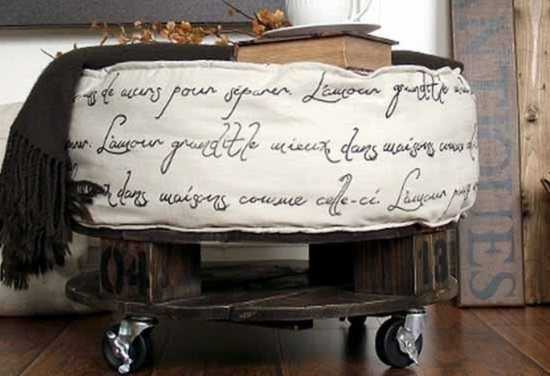 de murs pour séparer. L'amour grandit le
L'amour grandit le mieux dans maisons comme
dans maisons comme celle-ci L'amour
04
13
NTIQUES